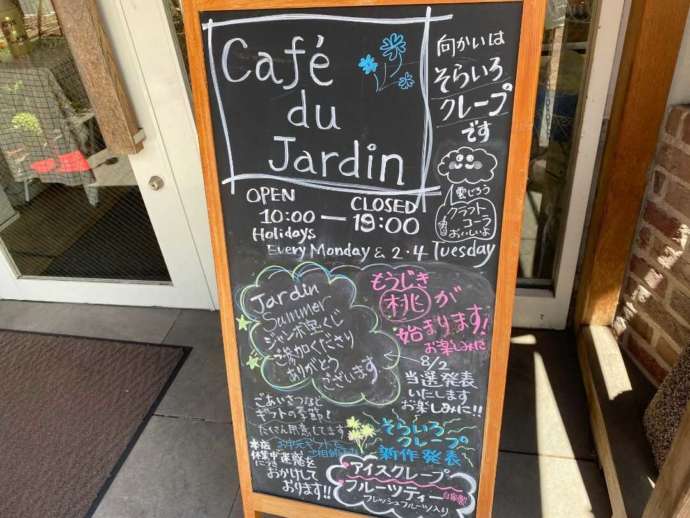 Café
du
Jardin
向かいは
そらいろ
クレープ
です
クラフト
コーラ
おいしいよ
OPEN CLOSED
10:00 — 19:00
Holidays
Every Monday & 2・4 Tuesday
Jardin
Summer
ジャンボ宝くじ
ご参加くださり
ありがとう
ございます
そうじき
桃が
始まります!
お楽しみに
8/2
当選発表
いたします
お楽しみに!!
ごあいさつなど
ギフトの季節!
たくさん用意してます!
お中元ギフトも
本店
休業中
につき
ご迷惑を
おかけして
おります!!
そらいろ
クレープ
新作発表
アイスクレープ
フルーツティー 自家製
フレッシュフルーツ入り